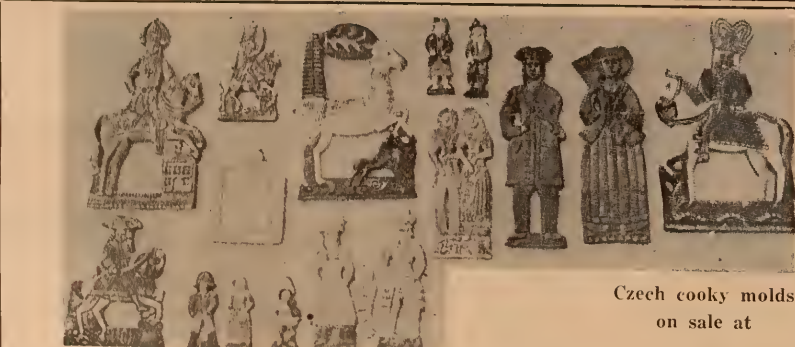 Czech cooky molds
on sale at